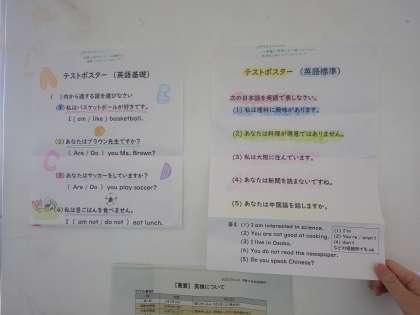 テストポスター（英語基礎）
（　）内から適する語を選びなさい
(1)私はバスケットボールが好きです。
I ( am / like ) basketball.
(2)あなたはブラウン先生ですか？
( Are / Do ) you Ms. Brown?
(3)あなたはサッカーをしていますか？
( Are / Do ) you play soccer?
(4)私は昼ごはんを食べません。
I ( am not / do not ) eat lunch.
テストポスター（英語標準）
次の日本語を英語で表しなさい。
(1) 私は理科に興味があります。
(2) あなたは料理が得意ではありません。
(3) 私は大阪に住んでいます。
(4) あなたは新聞を読まないですね。
(5) あなたは中国語を話しますか。
答え (1) I am interested in science.
(2) You are not good at cooking.
(3) I live in Osaka.
(4) You do not read the newspaper.
(5) Do you speak Chinese?
(1) I'm
(2) You're / aren't
(4) don't
などの短縮形でもok
【重要】英検について